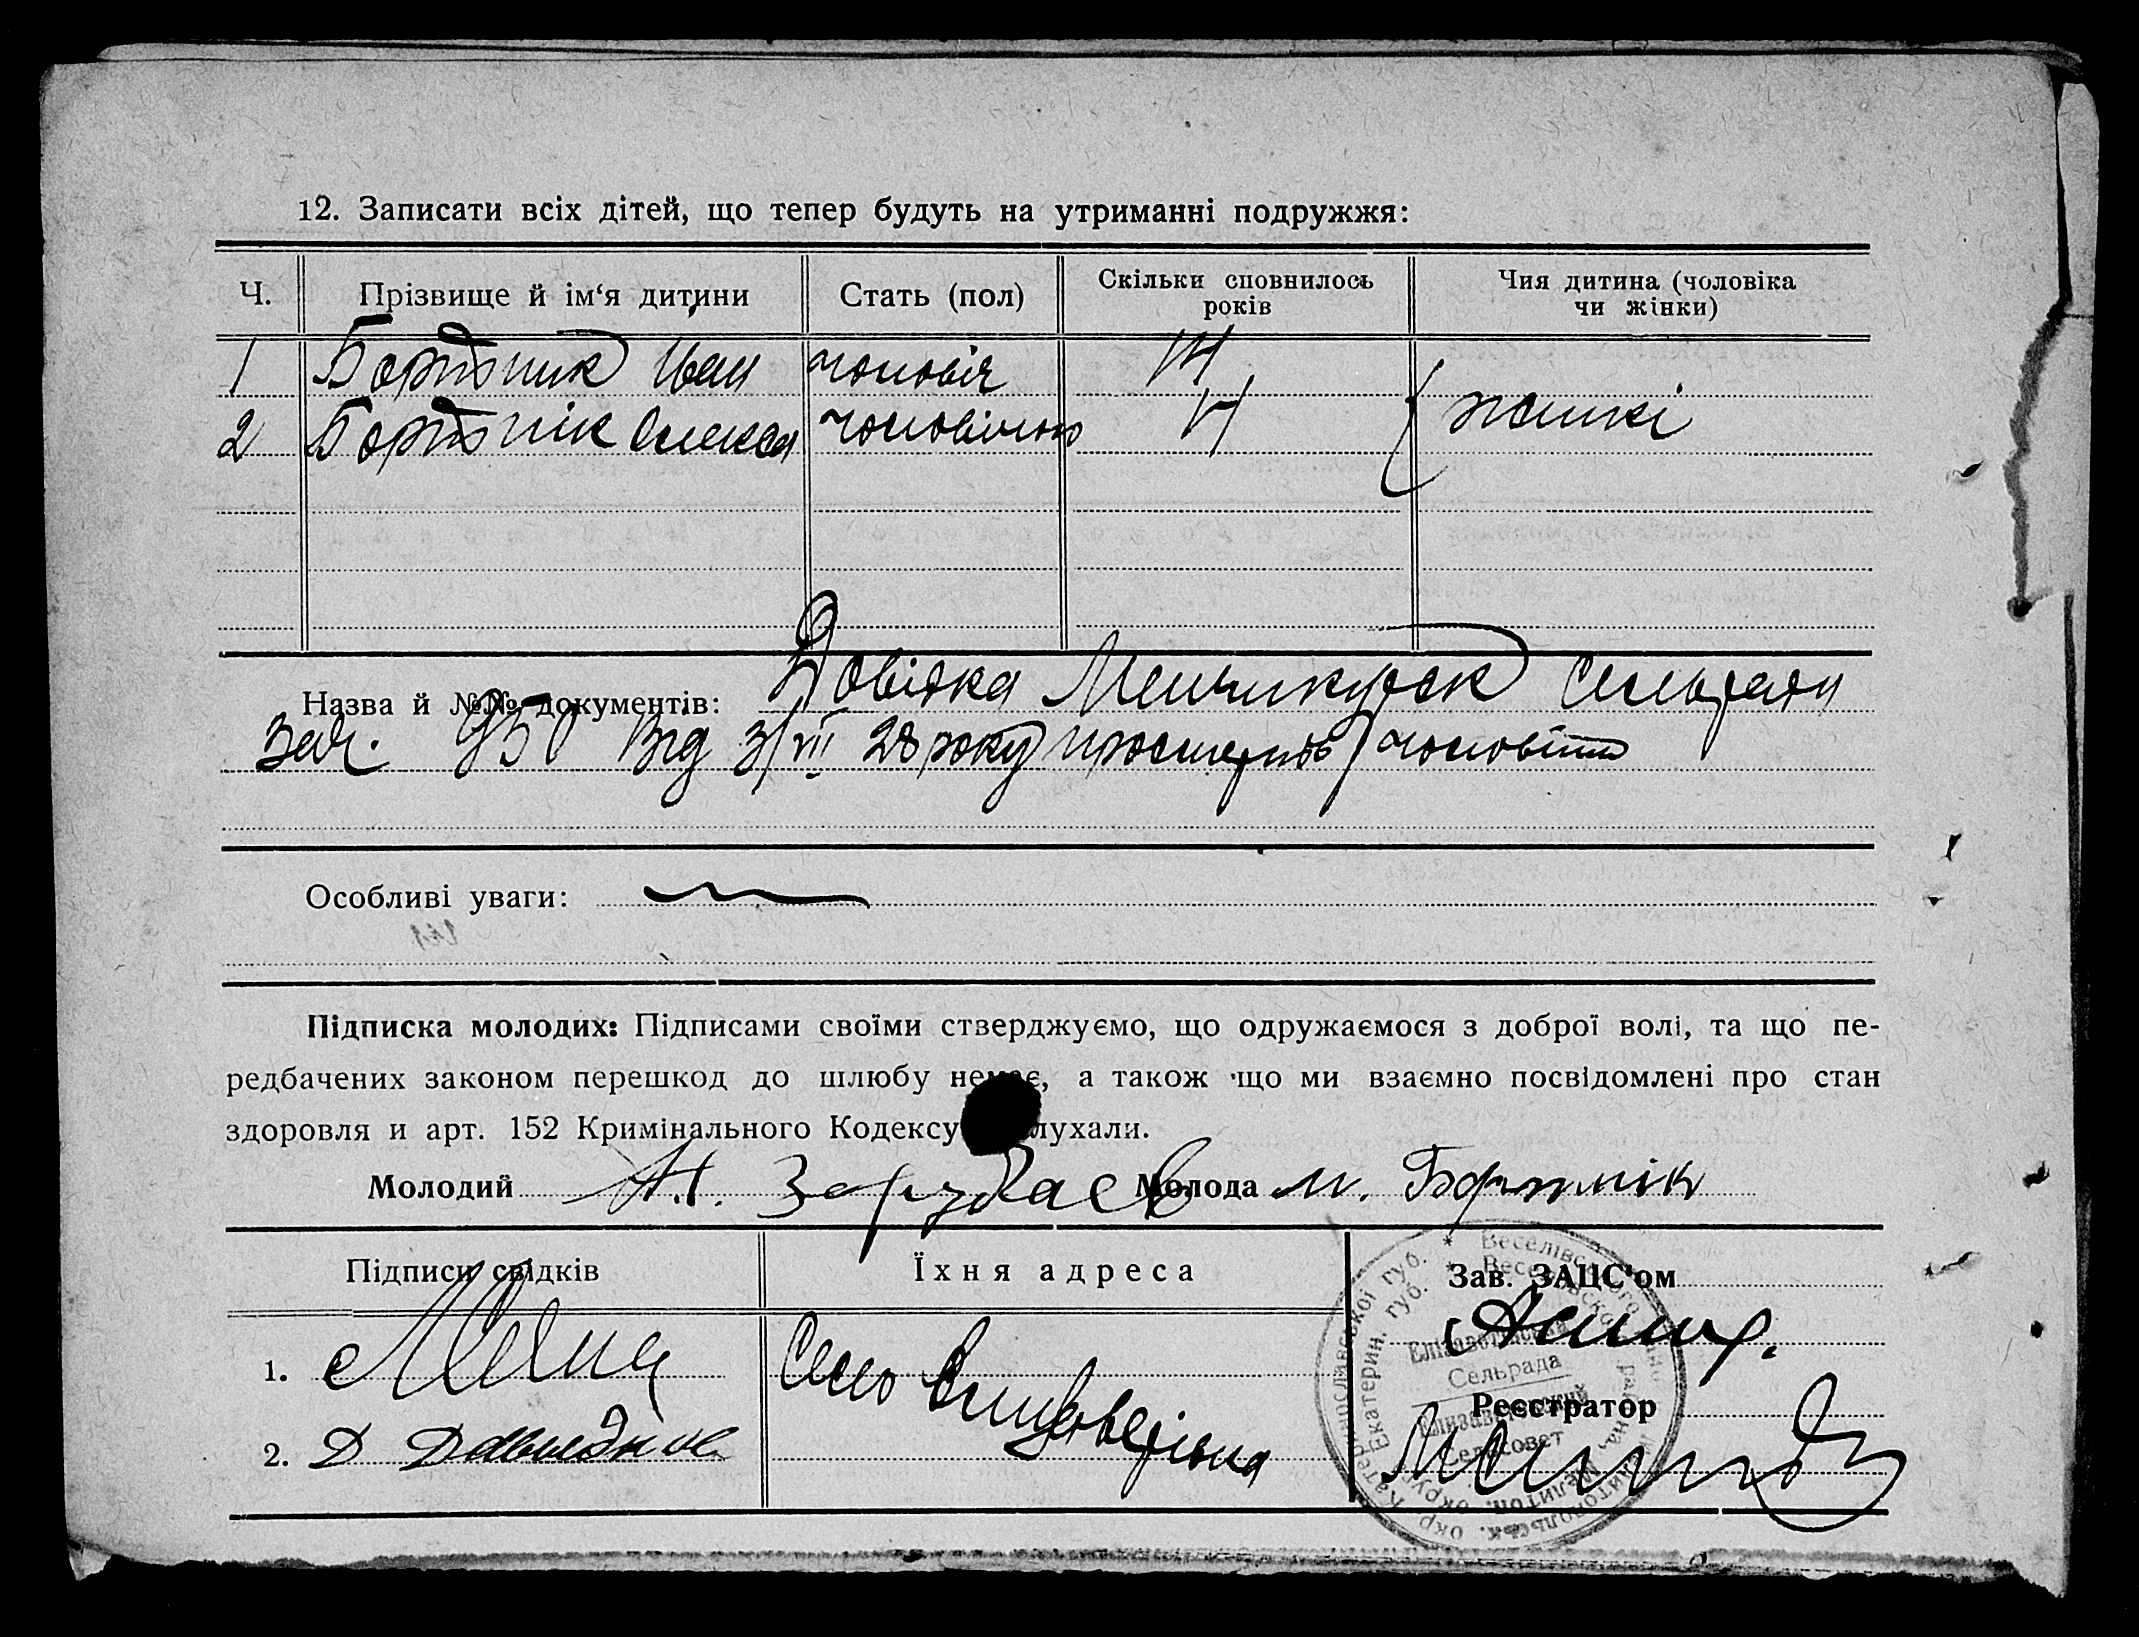 12. Записати всіх дітей, що тепер будуть на утриманні подружжя:
Ч. Прізвище й ім‘я дитини Стать (пол) Скільки сповнилось років Чия дитина (чоловіка чи жінки)
1 Бортник Иван чоловіч
2 Бортнік Олекса чоловічою жинкі
Назва й №№ документів: Довідка Менчикурск Сельради
За ч. 950 Від 3/VIII 28 року про смерть чоловіка
Особливі уваги:
Підписка молодих: Підписами своїми стверджуємо, що одружаємося з доброї волі, та що пе-
редбачених законом перешкод до шлюбу немає, а також що ми взаємно посвідомлені про стан
здоровля и арт. 152 Кримінального Кодексу лухали.
Молодий Зарубаєв Молода М. Бортнік
Підписи свідків Їхня адреса Зав. ЗАЦС'ом
1. Село Єлизаветівка
Реєстратор
2. Д
Елізаветівська
Сельрада
Елизаветовский
Сельсовет